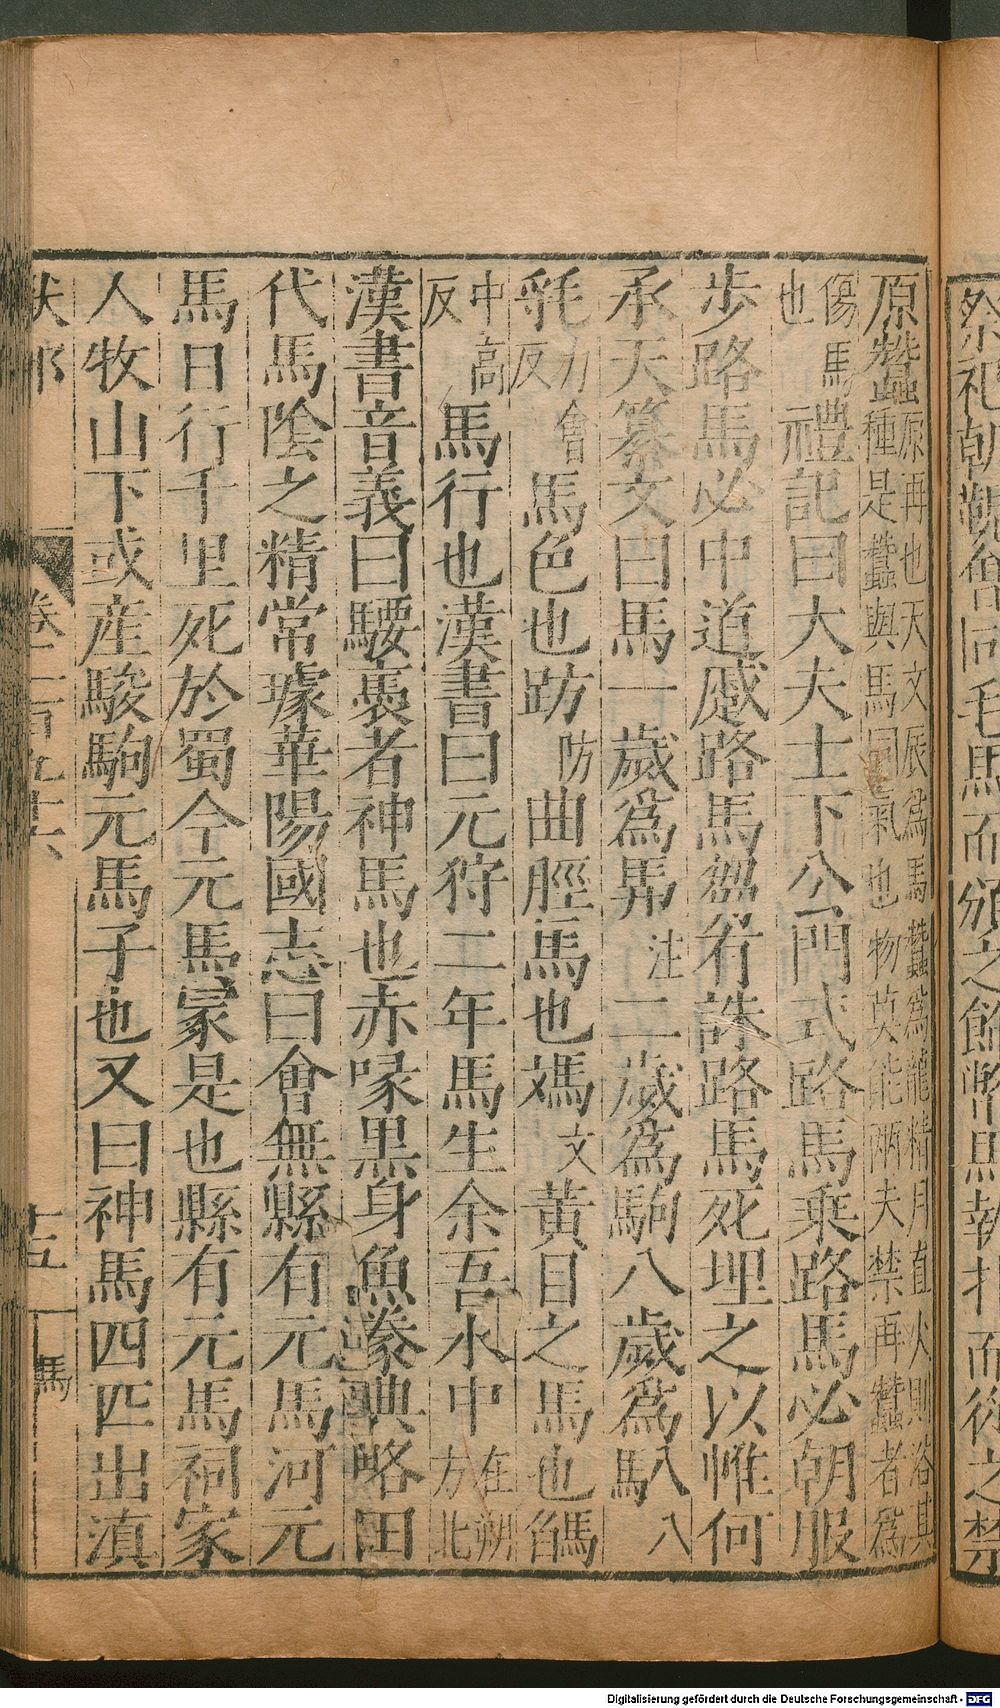 祭祀朝覲會同毛馬而頒之飾幣馬執扑而從之禁
原蠶原再也天文辰爲馬蠶爲龍精月直火則浴其種是蠶與馬同氣也物莫能兩夫禁再蠶者爲
傷馬也禮記曰大夫士下公門式路馬乗路馬必朝服
歩路馬必中道蹙路馬芻有誅路馬死埋之以惟何
承天纂文曰馬一歲爲注二歲爲駒八歲爲馬八八
力會反馬色也防曲脛馬也媽文黃目之馬也
中高反馬行也漢書曰元狩二年馬生余吾水中在朔方北
漢書音義曰騕褭者神馬也赤喙黒身魚豢典略田
代馬陰之精常璩華陽國志曰會無縣有元馬河元
馬日行千里死於蜀今元馬冢是也縣有元馬祠家
人牧山下或産駿駒元馬子也又曰神馬四匹出滇
十五
馬
Digitalisierung gefördert durch die Deutsche Forschungsgemeinschaft - DFG